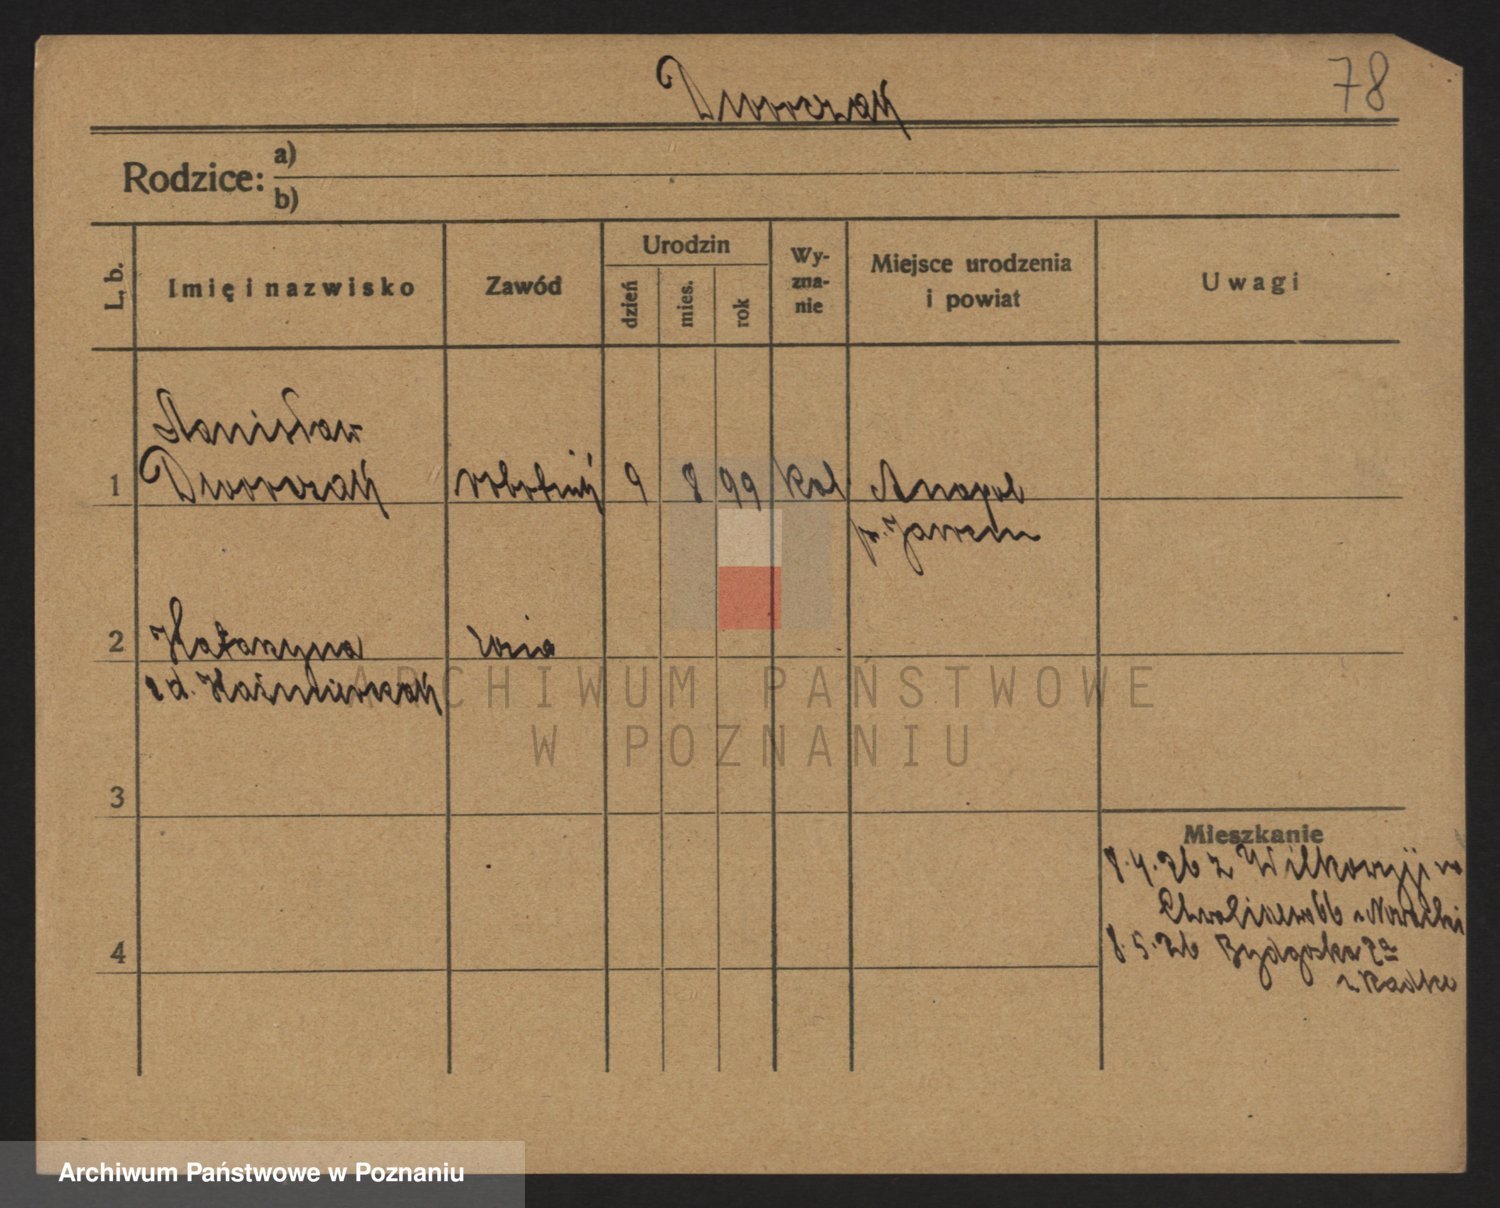 Dworczak
78
Rodzice:
a)
b)
L. b.
Imię i nazwisko
Zawód
Urodzin
dzień
mies.
rok
Wy-
zna-
nie
Miejsce urodzenia
i powiat
Uwagi
Stanisław
1 Dworczak robotnik 9 8 99 kat Anapol
p. Jarocin
2 Katarzyna
zd. Kaźmierczak
3
Mieszkanie
8.4.26 z Wilkowyji
8.5.26 Bydgoska
4
ARCHIWUM PAŃSTWOWE
W POZNANIU
Archiwum Państwowe w Poznaniu